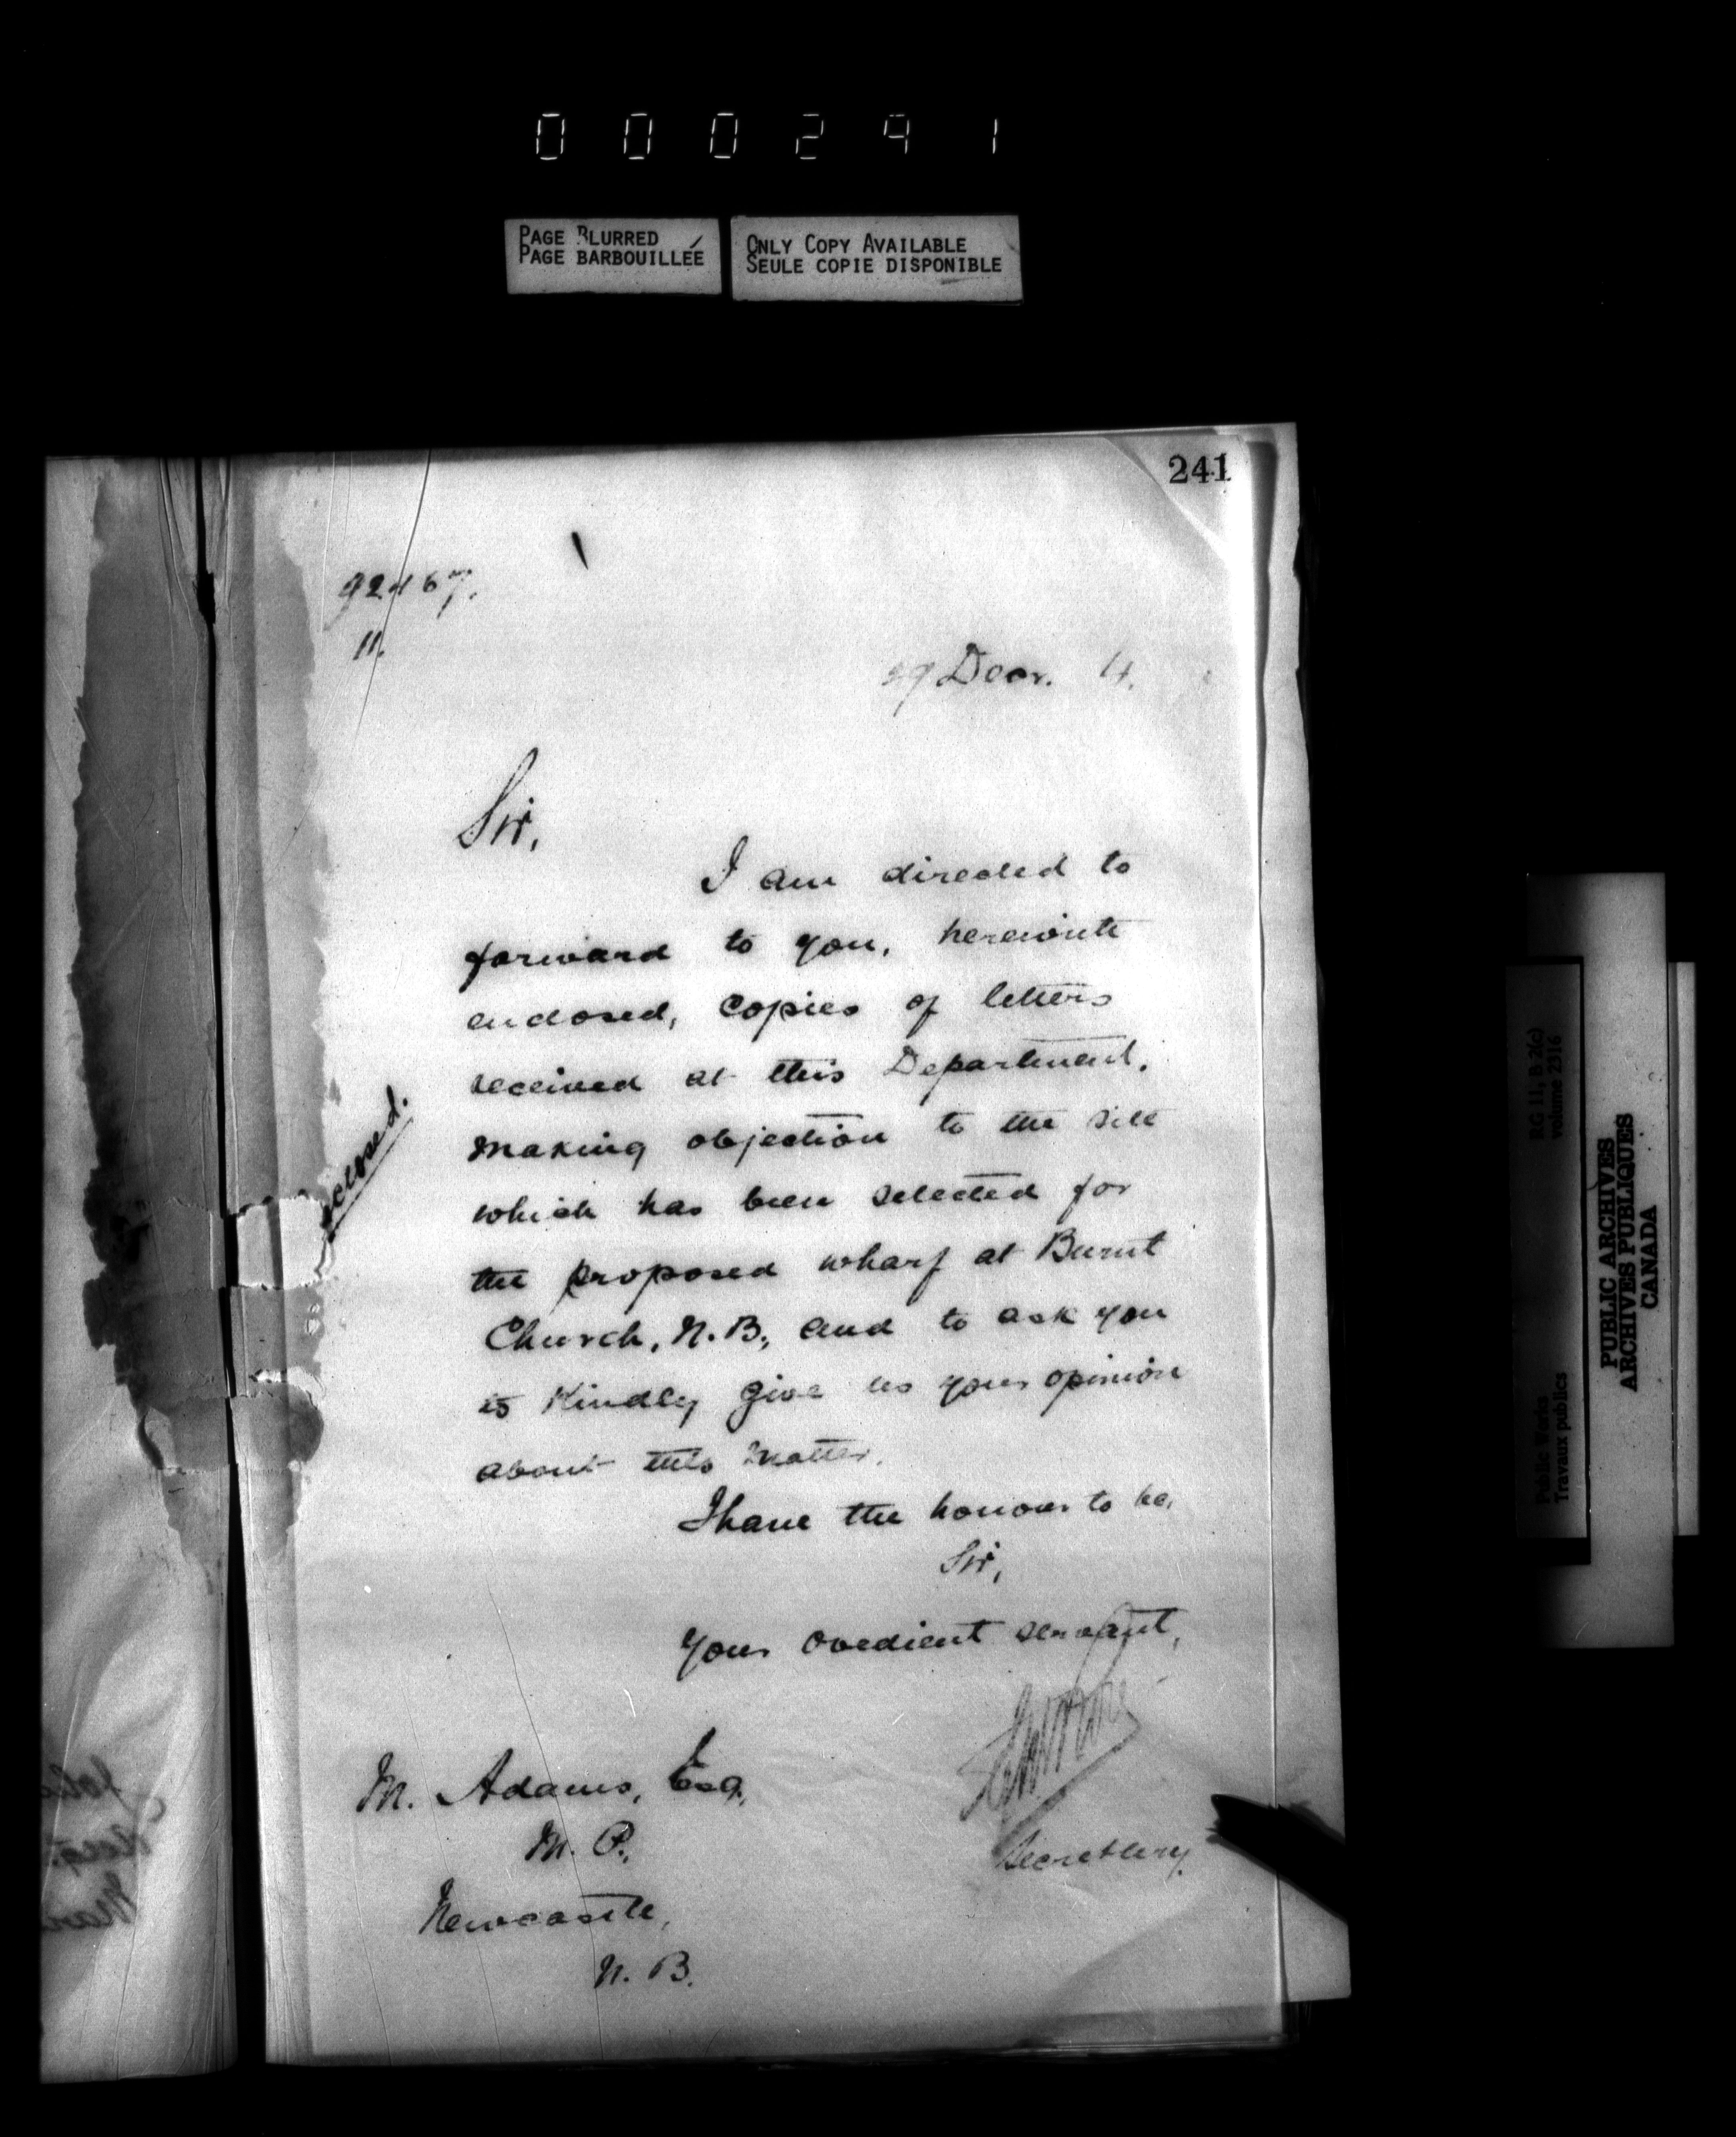 000291
PAGE BLURRED
PAGE BARBOUILLÉE
ONLY COPY AVAILABLE
SEULE COPIE DISPONIBLE
241
92467.
11.
29 Decr. 4.
Sir,
I am directed to
forward to you, herewith
enclosed, copies of letters
received at this Department,
making objection to the site
which has been selected for
the proposed wharf at Burnt
Church, N.B., and to ask you
to kindly give us your opinion
about this matter.
I have the honour to be,
Sir,
Your obedient servant,
Secretary.
M. Adams, Esq.,
M. P.,
Newcastle,
N. B.
closed.
RG 11, B 2(c)
volume 2316
Public Works
Travaux publics
PUBLIC ARCHIVES
ARCHIVES PUBLIQUES
CANADA